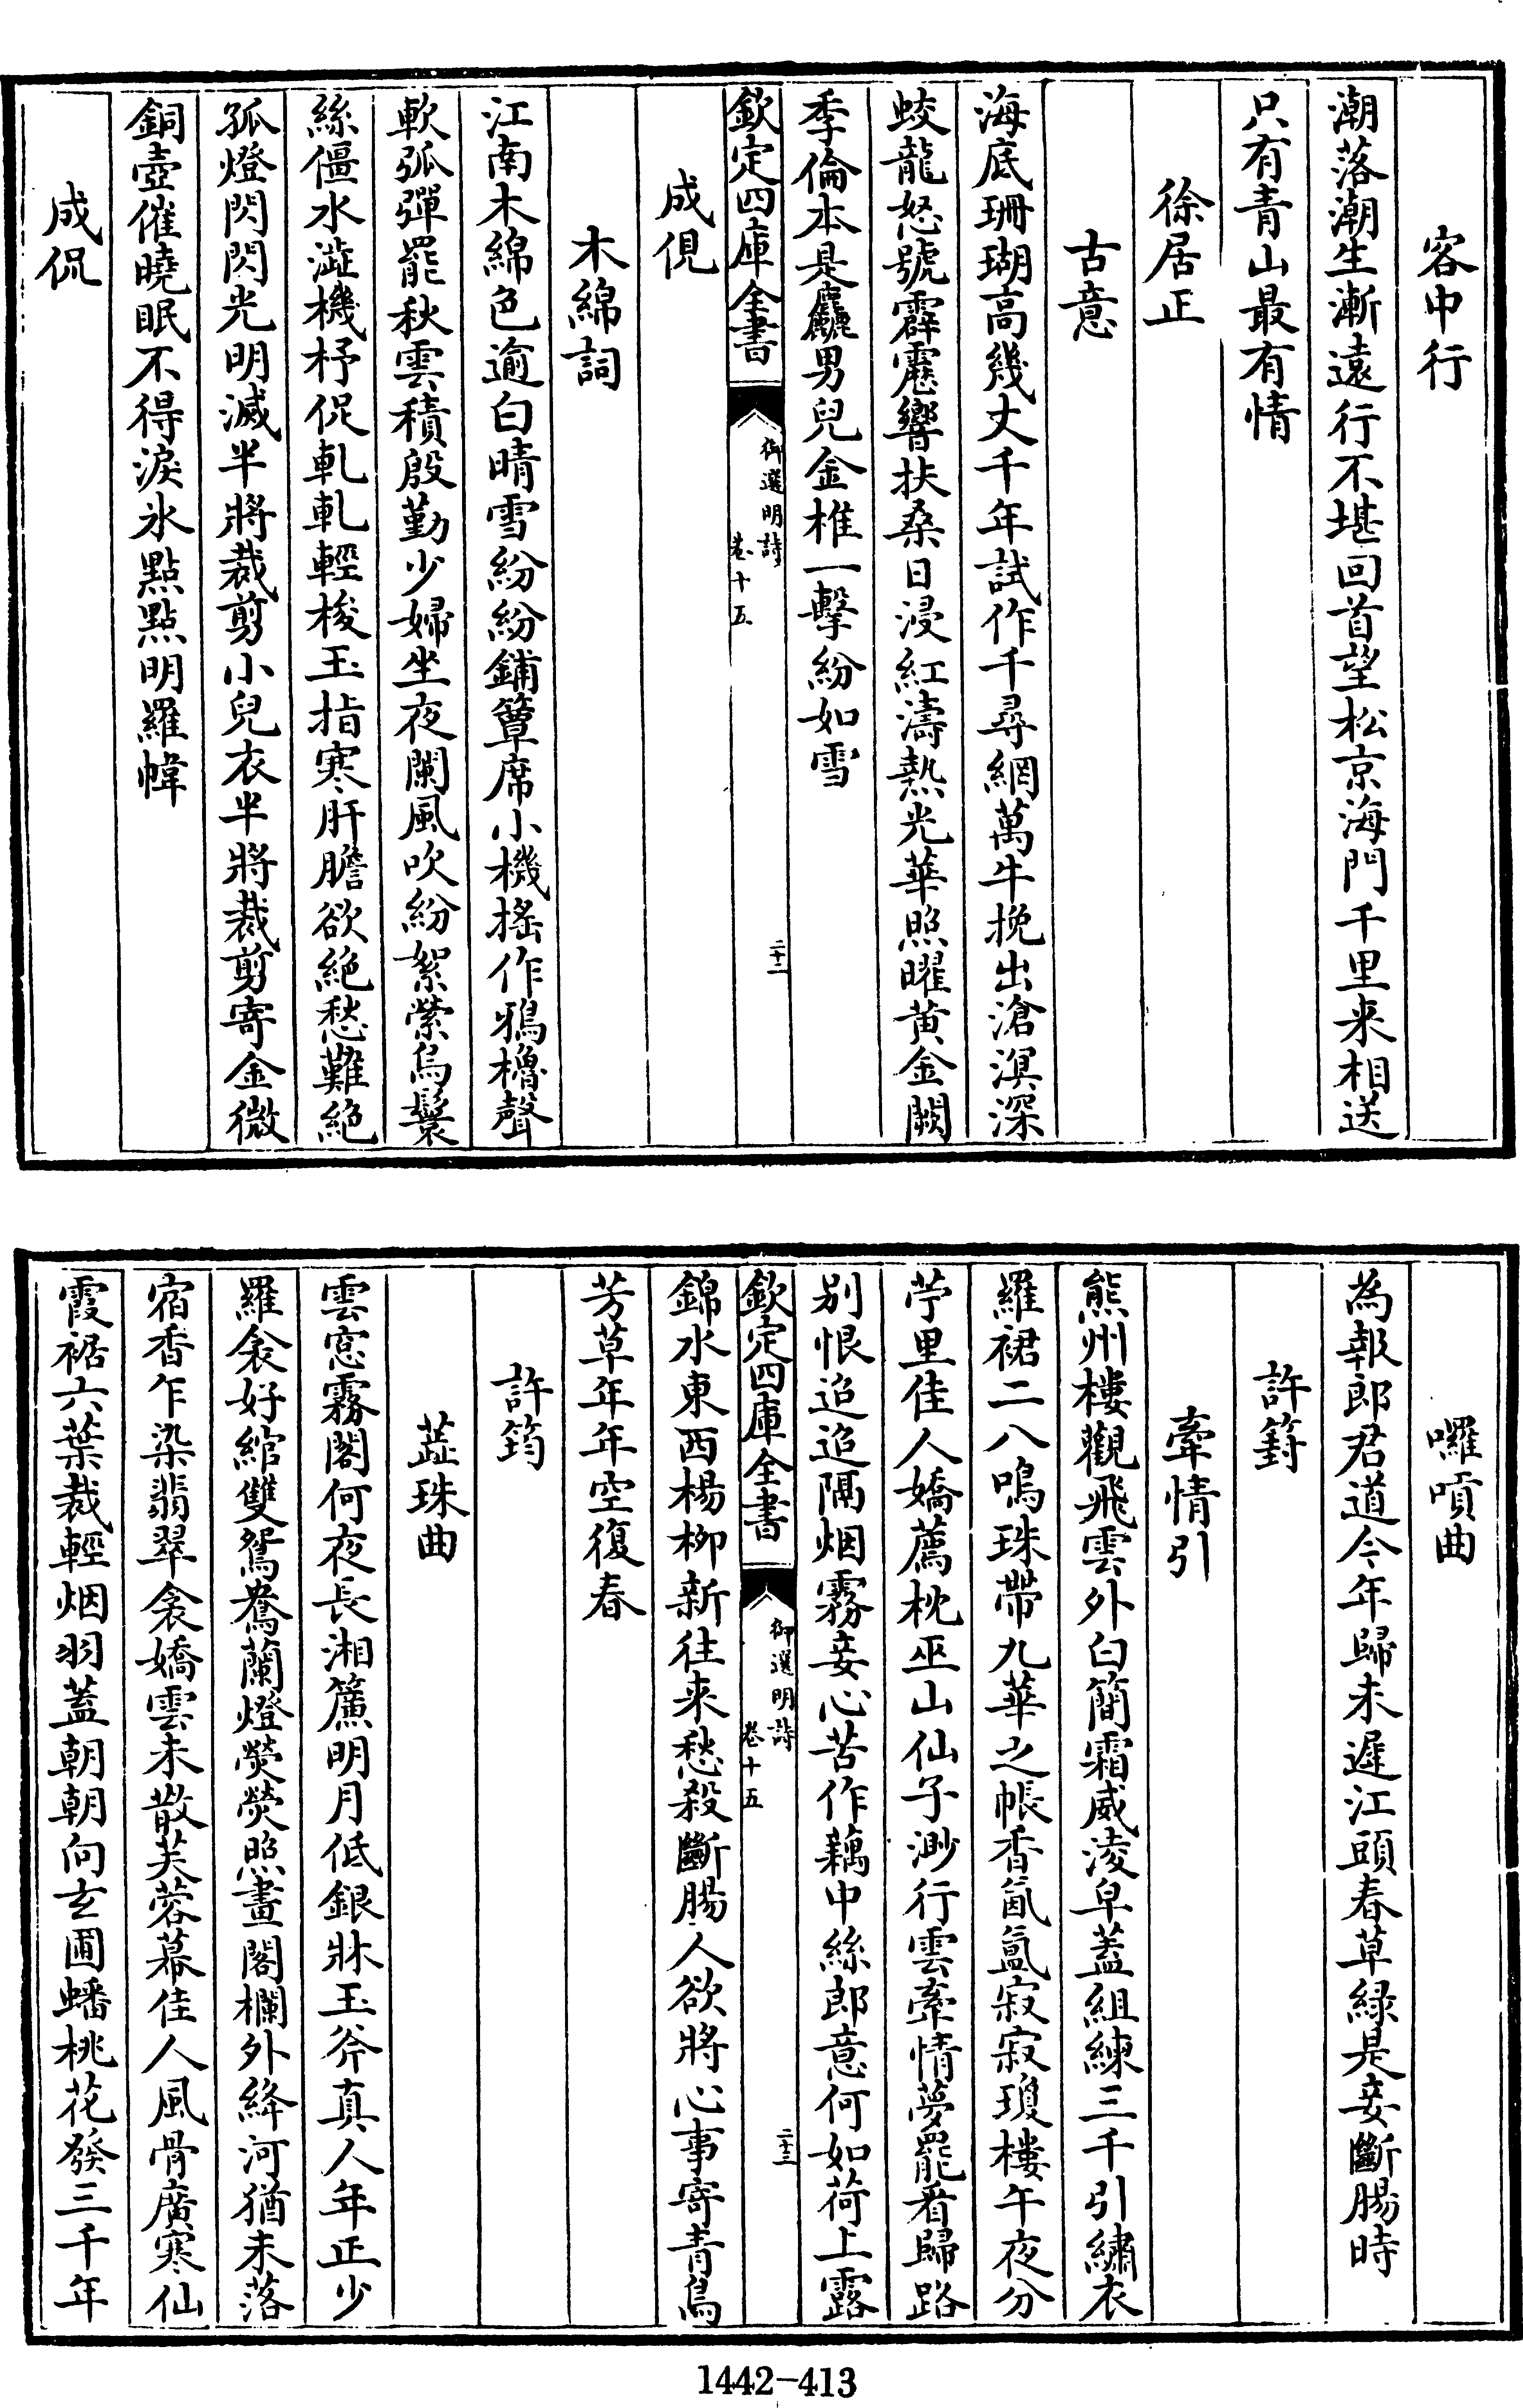 客中行
潮落潮生漸遠行不堪回首望松京海門千里来相送
只有青山最有情
徐居正
古意
海底珊瑚高幾丈千年試作千尋網萬牛挽出滄溟深
蛟龍怒號霹靂響扶桑日浸紅濤熱光華照曜黄金闕
季倫本是麤男兒金椎一擊紛如雪
欽定四庫全書
御選明詩
卷十五
二十二
成俔
木綿詞
江南木綿色逾白晴雪紛紛鋪簟席小機搖作鴉櫓聲
軟弧彈罷秋雲積殷勤少婦坐夜闌風吹紛絮縈烏鬟
絲僵水澁機杼促軋軋輕梭玉指寒肝膽欲絶愁難絶
孤燈閃閃光明滅半將裁剪小兒衣半將裁剪寄金微
銅壺催曉眠不得淚氷點點明羅幃
成侃
囉嗊曲
為報郎君道今年歸未遲江頭春草緑是妾斷腸時
許篈
牽情引
熊州樓觀飛雲外白簡霜威淩皁蓋組練三千引繡衣
羅裙二八鳴珠帶九華之帳香氤氲寂寂瓊樓午夜分
苧里佳人嬌薦枕巫山仙子渺行雲牽情夢罷看歸路
别恨迢迢隔烟霧妾心苦作藕中絲郎意何如荷上露
欽定四庫全書
御選明詩
卷十五
二十三
錦水東西楊柳新往来愁殺斷腸人欲將心事寄青鳥
芳草年年空復春
許筠
蘂珠曲
雲窓霧閣何夜長湘簾明月低銀牀玉斧真人年正少
羅衾好綰雙鴛鴦蘭燈熒熒照畫閣欄外絳河猶未落
宿香乍染翡翠衾嬌雲未散芙蓉幕佳人風骨廣寒仙
霞裾六葉裁輕烟羽蓋朝朝向玄圃蟠桃花發三千年
1442-413